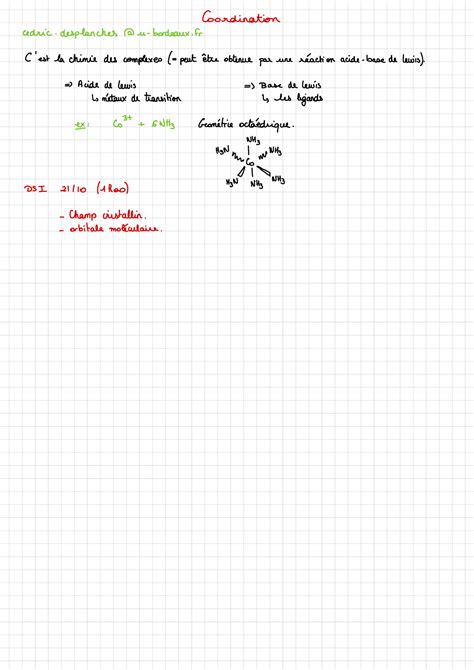 Coordination
cedric.desplanches@u-bordeaux.fr
C'est la chimie des complexes (= peut être obtenue par une réaction acide-base de lewis).
=> Acide de lewis => Base de lewis
↳ métaux de transition ↳ les ligands
ex: Co³⁺ + 6 NH₃ Géométrie octaédrique.
NH₃
H₃N NH₃
Co
H₃N NH₃ NH₃
DS I 21/10 (1h20)
- Champ cristallin.
- orbitale moléculaire.